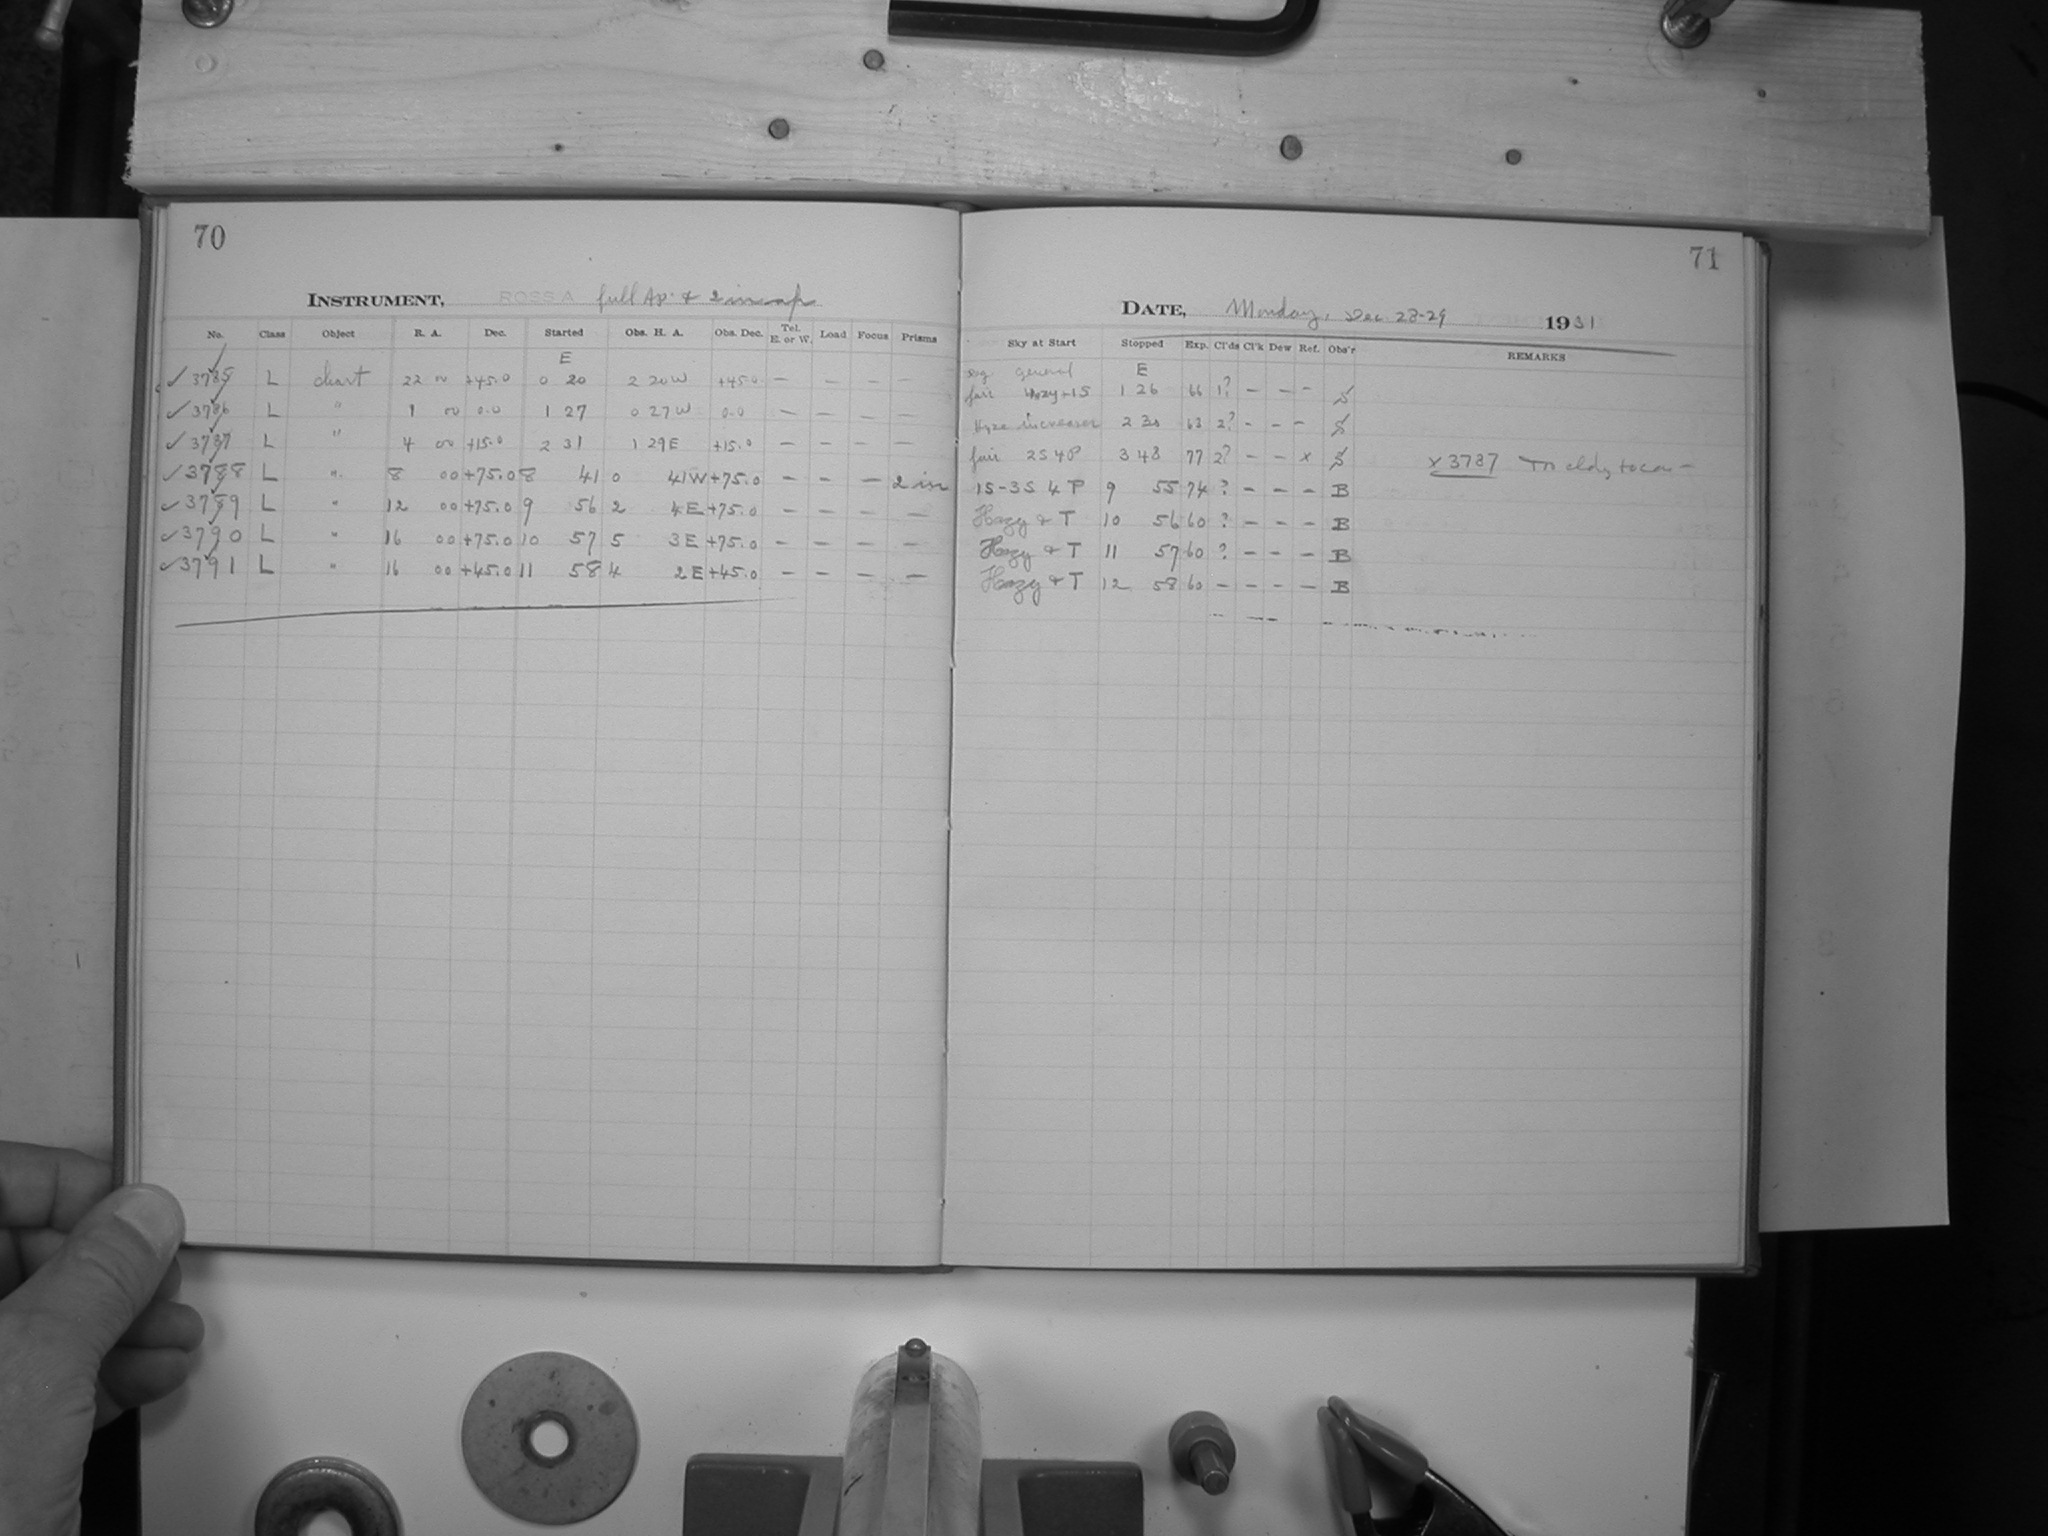 70
INSTRUMENT, ROSS A full Ap. & 2 in ap
No. Class Object R. A. Dec. Started Obs. H. A. Obs. Dec. Tel. E. or W. Load Focus Prisms
E
✓ 3785 L chart 22 00 +45.0 0 20 2 20 W +45.0 — — — —
✓ 3786 L " 1 00 0.0 1 27 0 27 W 0.0 — — — —
✓ 3787 L " 4 00 +15.0 2 31 1 29 E +15.0 — — — —
✓ 3788 L " 8 00 +75.0 8 41 0 41 W +75.0 — — — 2 in
✓ 3789 L " 12 00 +75.0 9 56 2 4 E +75.0 — — — —
✓ 3790 L " 16 00 +75.0 10 57 5 3 E +75.0 — — — —
✓ 3791 L " 16 00 +45.0 11 58 4 2 E +45.0 — — — —
71
DATE, Monday, Dec 28-29 1931
Sky at Start Stopped Exp. Cl'ds Cl'k Dew Ref. Obs'r REMARKS
general E
fair hazy + 1S 1 26 66 1? — — — S
Haze increases 2 30 63 2? — — — S
fair 2S 4P 3 48 77 2? — — x S x 3787 Too cldy to
1S-3S 4 P 9 55 74 ? — — — B
Hazy & T 10 56 60 ? — — — B
Hazy & T 11 57 60 ? — — — B
Hazy & T 12 58 60 — — — — B